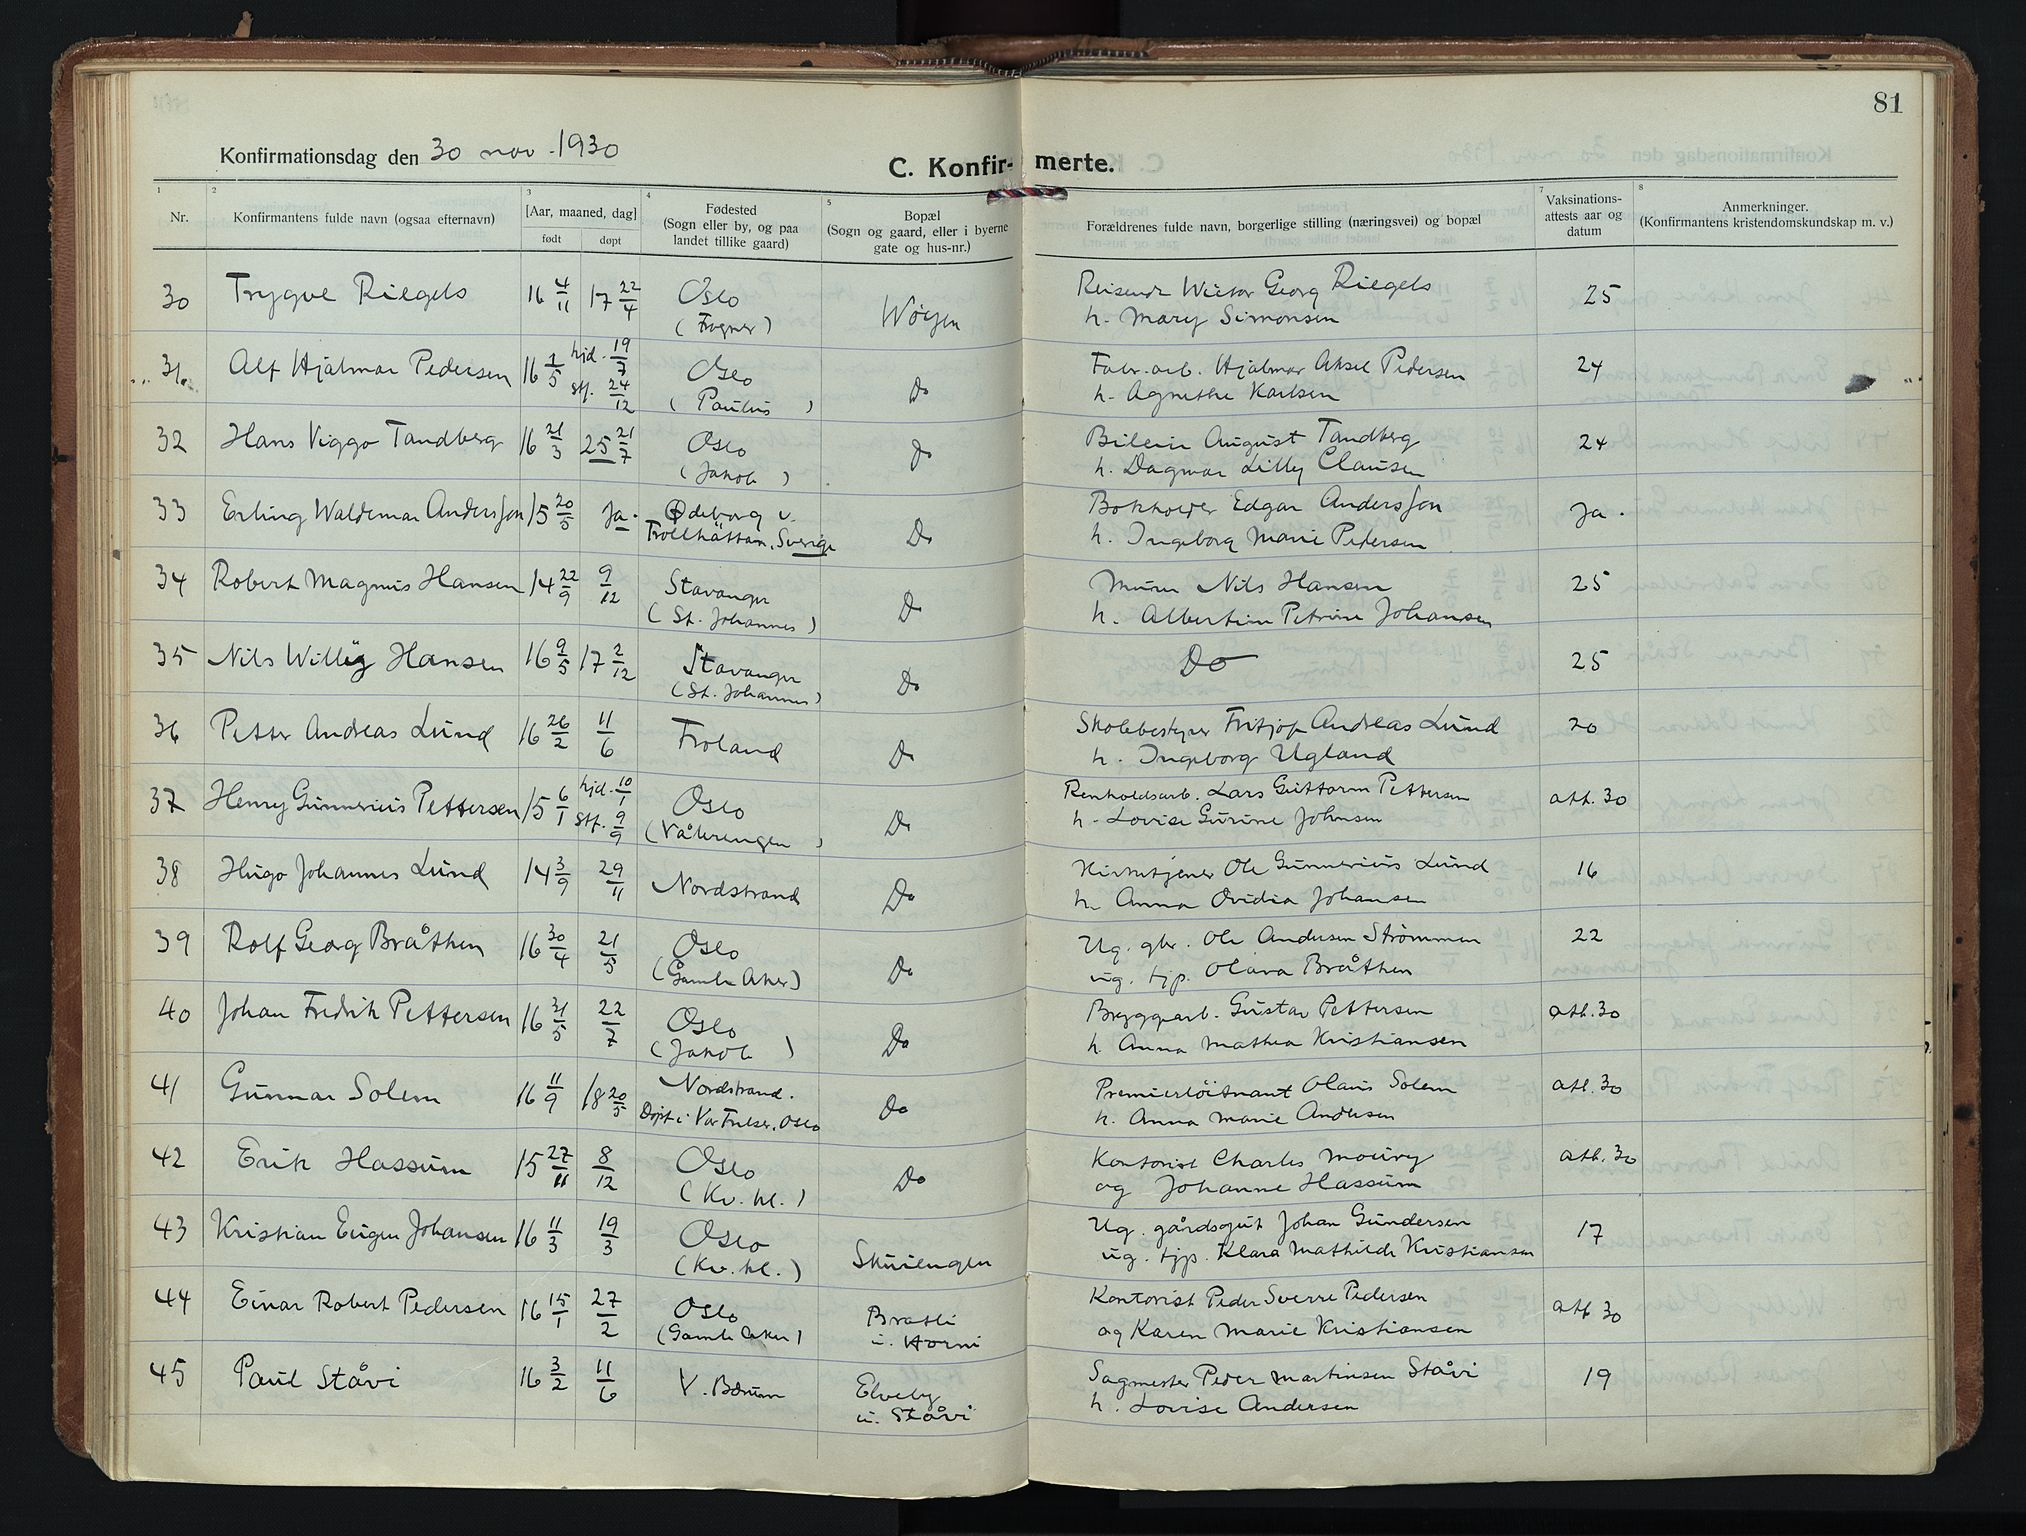 81
Konfirmationsdag den 30 nov. 1930
C. Konfirmerte.
1 2 3 4 5 7 8
Nr.
Konfirmantens fulde navn (ogsaa efternavn)
[Aar, maaned, dag]
født døpt
Fødested
(Sogn eller by, og paa
landet tillike gaard)
Bopæl
(Sogn og gaard, eller i byerne
gate og hus-nr.)
Forældrenes fulde navn, borgerlige stilling (næringsvei) og bopæl
Vaksinations-
attests aar og
datum
Anmerkninger.
(Konfirmantens kristendomskundskap m. v.)
30 Trygve Riegels 16 4/11 17 22/4 Oslo Reisende Victor Georg Riegels 25
(Frogner) h. Mary Simonsen
31. Alf Hjalmar Pedersen 16 1/5 hjd. 19/7 Oslo Do Fabr. arb. Hjalmar Aksel Pedersen 24
stf. 24/12 (Paulus) h. Agnethe Karlsen
32 Hans Viggo Tandberg 16 21/3 25 21/7 Oslo Do August Tandberg 24
(Jakob) h. Dagmar Lilly Clausen
33 Erling Waldemar Andersson 15 20/5 Ja. Ødeborg i Do Bokholder Edgar Andersson Ja.
Trollhättan, Sverige h. Ingeborg Marie Pedersen
34 Robert Magnus Hansen 14 22/9 9/12 Stavanger Do Murer Nils Hansen 25
(St. Johannes) h. Albertine Petrine Johansen
35 Nils Willy Hansen 16 9/5 17 2/12 Stavanger Do Do 25
(St. Johannes)
36 Petter Andreas Lund 16 26/2 11/6 Froland Do Skolebestyrer Fritjof Andreas Lund 20
h. Ingeborg Ugland
37 Henry Gunnerius Pettersen 15 6/1 hjd. 10/1 Oslo Do Renholdsarb. Lars Guttorm Pettersen att. 30
stf. 9/9 (Vålerengen) h. Lovise Gurine Johnsen
38 Hugo Johannes Lund 14 3/9 29/11 Nordstrand Do Kirketjener Ole Gunnerius Lund 16
h. Anna Ovidia Johansen
39 Rolf Georg Bråthen 16 30/4 21/5 Oslo Do Ug. gbr. Ole Andersen Strømmen 22
(Gamle Aker) ug. tjp. Olava Bråthen
40 Johan Fredrik Pettersen 16 31/5 22/7 Oslo Do Bryggearb. Gustav Pettersen att. 30
(Jakob) h. Anna Mathea Kristiansen
41 Gunnar Solem 16 11/9 18 20/5 Nordstrand. Do Premierløitnant Olaus Solem att. 30
Døpt i Vor Frelser, Oslo h. Anna Marie Andersen
42 Erik Hassum 15 27/11 8/12 Oslo Do Kontorist Charles Moury att. 30
(Kv. kl.) og Johanne Hassum
43 Kristian Eugen Johansen 16 11/3 19/3 Oslo Skuiengen Ug. gårdsgut Johan Gundersen 17
(Kv. kl.) ug. tjp. Klara Mathilde Kristiansen
44 Einar Robert Pedersen 16 15/1 27/2 Oslo Bratli Kontorist Peder Sverre Pedersen att 30
(Gamle Aker) u. Horni og Karen Marie Kristiansen
45 Paul Ståvi 16 3/2 11/6 V. Bærum Elveby Sagmester Peder Martinsen Ståvi 19
u. Ståvi h. Lovise Andersen